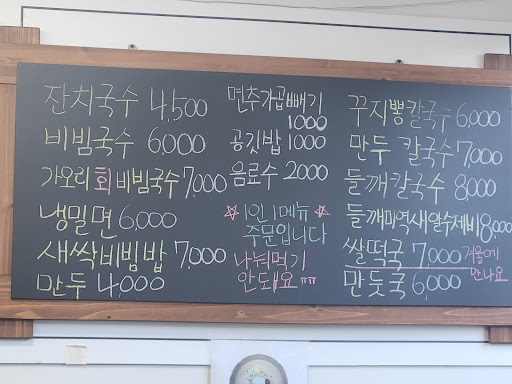 잔치국수 4,500
비빔국수 6,000
가오리회비빔국수 7,000
냉밀면 6,000
새싹비빔밥 7,000
만두 4,000
면추가곱빼기
1000
공깃밥 1000
음료수 2000
☆1인 1메뉴☆
주문입니다
나눠먹기
안돼요 ㅠㅠ
꾸지뽕칼국수 6,000
만두 칼국수 7,000
들깨칼국수 8,000
들깨미역새알수제비 8,000
쌀떡국 7,000 겨울에
만나요
만둣국 6,000